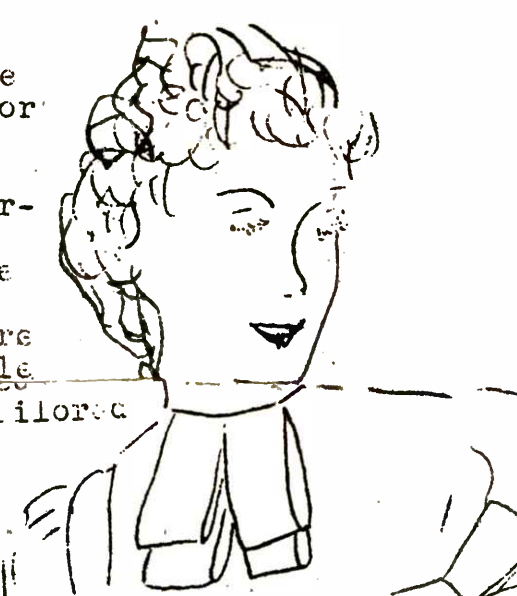 e
or
r-
e
re
le
ilored